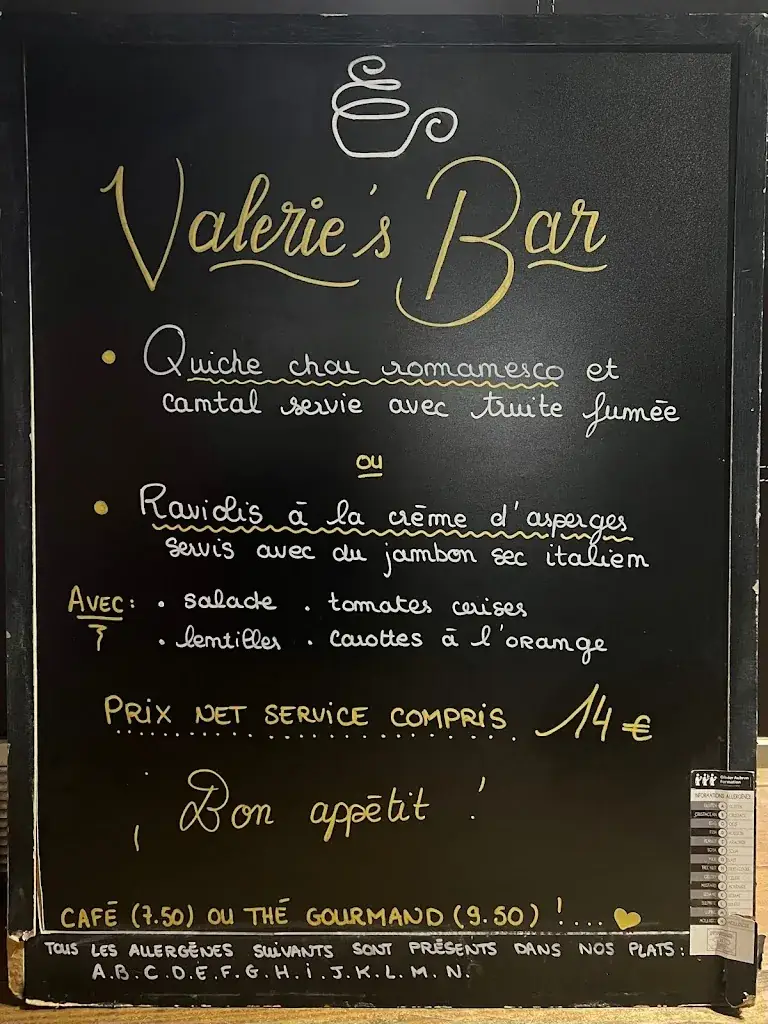 Valerie's Bar
• Quiche chou romanesco et
cantal servie avec truite fumée
ou
• Raviolis à la crème d'asperges
servis avec du jambon sec italien
AVEC: • salade • tomates cerises
• lentilles • carottes à l'orange
PRIX NET SERVICE COMPRIS 14 €
¡ Bon appétit !
CAFÉ (7.50) OU THÉ GOURMAND (9.50) !.... 
TOUS LES ALLERGÈNES SUIVANTS SONT PRÉSENTS DANS NOS PLATS:
A.B.C.D.E.F.G.H.i.J.K.L.M.N.